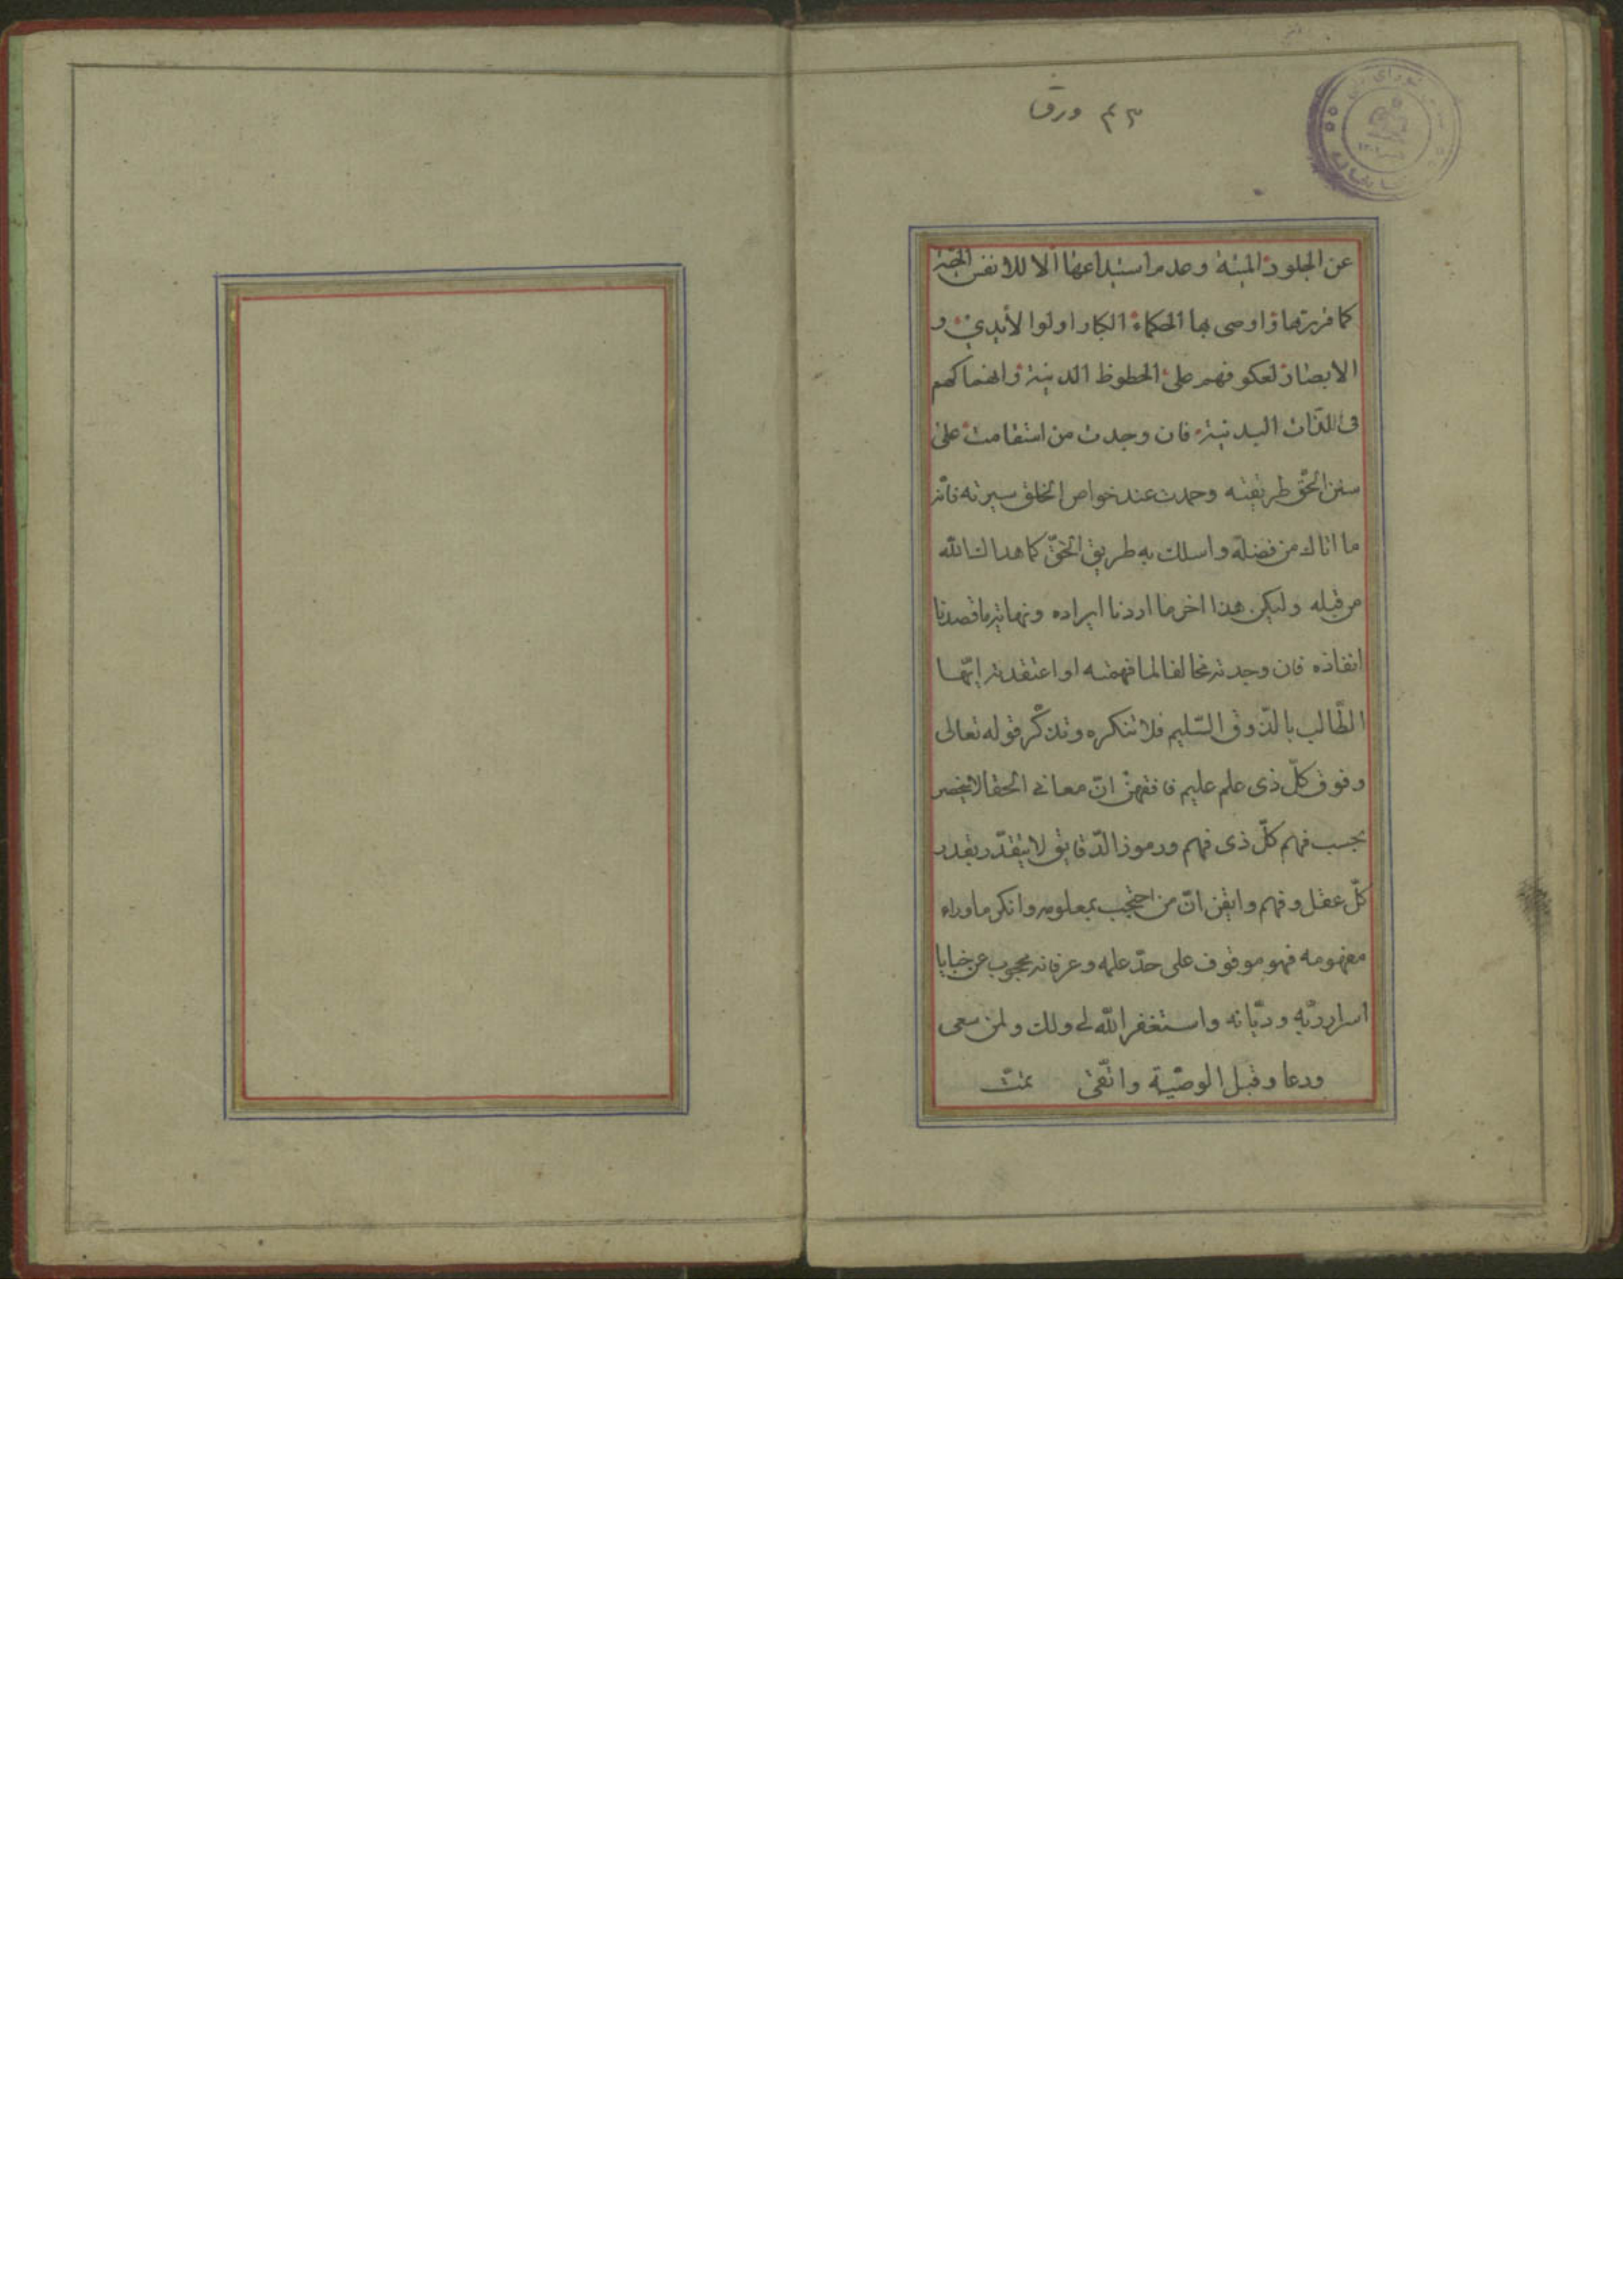 ٤٣ ورق
عن الجلود الميتة وعدم استيداعها الا للانفس الحية
كما قررتها واوصى بها الحكماء الكبار اولوا الأيدى و
الابصار لعكوفهم على الحظوظ الدنية وانهماكهم
فى اللذات البدنية فان وجدت من استقامت على
سنن الحق طريقته وحمدت عند خواص الخلق سيرته فآته
ما اتاك من فضله واسلك به طريق الحق كما هداك الله
من قبله وليكن هذا اخر ما اردنا ايراده ونهاية ما قصدنا
انفاذه فان وجدته مخالفا لما فهمته او اعتقدته ايّها
الطّالب بالذّوق السّليم فلا تنكره وتذكّر قوله تعالى
وفوق كلّ ذى علم عليم فافقهنّ انّ معانى الحق لا ينحصر
بحسب فهم كلّ ذى فهم ورموز الدّقايق لا يتقدّر بقدر
كلّ عقل وفهم وايقن انّ من احتجب بمعلومه وانكر ماوراء
مفهومه فهو موقوف على حدّ علمه وعرفانه محجوب عن خبايا
اسرار ربّه وديّانه واستغفر الله لى ولك ولمن سعى
ودعا وقبل الوصيّة واتّقى تمت